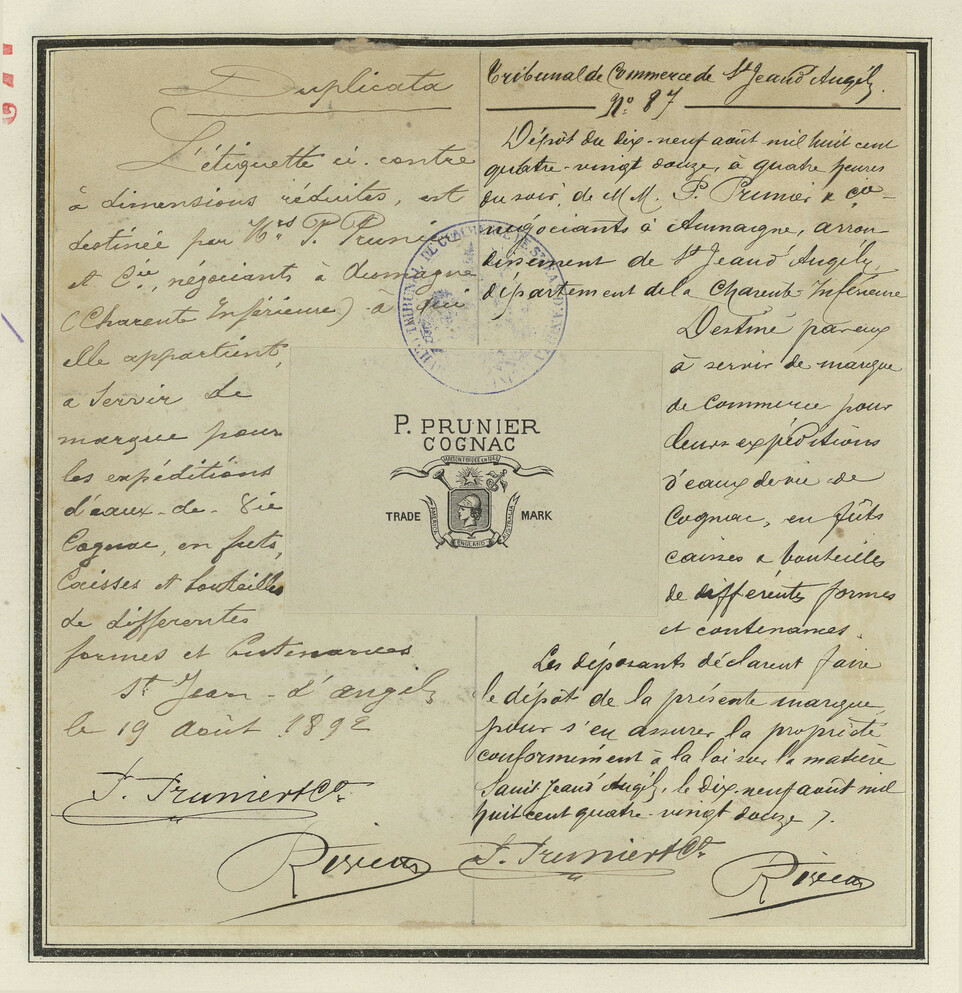 Duplicata
L'étiquette ci-contre
à dimensions réduites, est
destinée par Mrs P. Prunier
et Cie, négociants à Aumagne
(Charente Inférieure) à qui
elle appartient,
a servir de
marque pour
les expéditions
d'eaux-de-Vie
Cognac, en futs,
Caisses et bouteilles
de differentes
formes et Contenances
St Jean-d'angely
le 19 Août 1892
P. Prunier & Co.
Tribunal de Commerce de St Jean d'Angély.
No. 87
Dépôt du dix-neuf août mil huit cent
quatre-vingt douze, à quatre heures
du soir, de M.M. P. Prunier & Cie
négociants à Aumagne, arron-
dissement de St Jean d'Angély,
département de la Charente-Inférieure
Destiné par eux
à servir de marque
de Commerce pour
leurs expéditions
d'eaux de vie de
Cognac, en fûts
caisses & bouteilles
de différentes formes
et contenances.
Les déposants déclarent faire
le dépôt de la présente marque,
pour s'en assurer la propriété
conformément à la loi sur la matière
Saint Jean d'Angély, le dix-neuf août mil
huit cent quatre-vingt douze.
P. Prunier & Co.
TRIBUNAL DE COMMERCE DE ST JEAN D'ANGELY
P. PRUNIER
COGNAC
MAISON FONDÉE EN
TRADE MARK
AMERICA
ENGLAND
AUSTRALIA